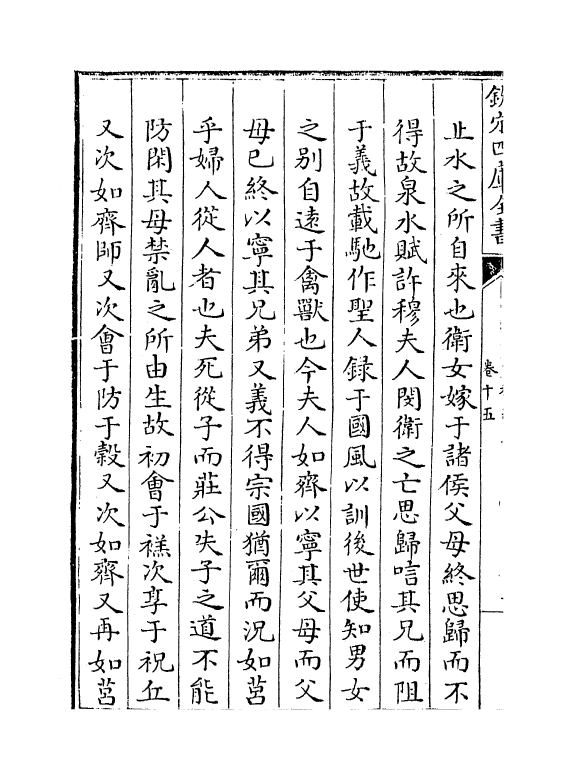 欽定四庫全書
卷十五
止水之所自來也衛女嫁于諸侯父母終思歸而不
得故泉水賦許穆夫人閔衛之亡思歸唁其兄而阻
于義故載馳作聖人録于國風以訓後世使知男女
之别自遠于禽獸也今夫人如齊以寧其父母而父
母已終以寧其兄弟又義不得宗國猶爾而況如莒
乎婦人從人者也夫死從子而莊公失子之道不能
防閑其母禁亂之所由生故初會于禚次享于祝丘
又次如齊師又次會于防于榖又次如齊又再如莒